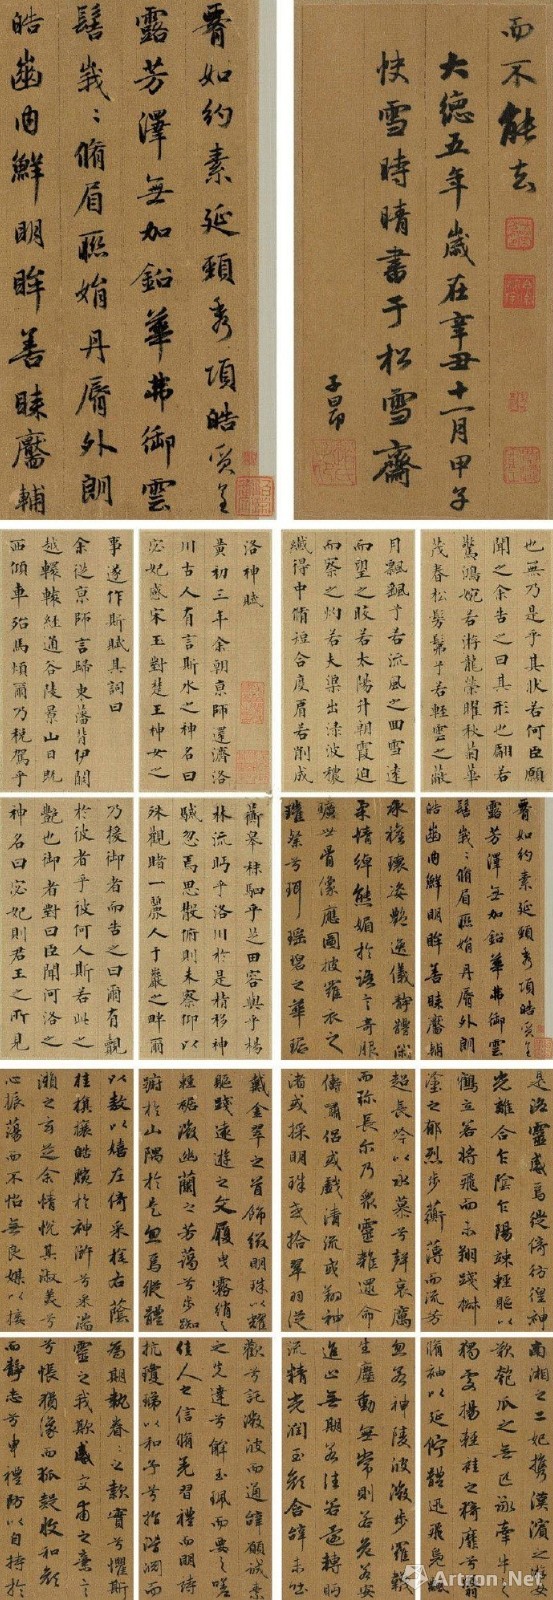 腰如約素延頸秀項皓質呈
露芳澤無加鉛華弗御雲
髻峩〻脩眉聯娟丹脣外朗
皓齒内鮮明眸善睞靨輔
而不能去
大德五年歲在辛丑十一月甲子
快雪時晴書于松雪齋
子昂
洛神賦
黃初三年余朝京師還濟洛
川古人有言斯水之神名曰
宓妃感宋玉對楚王神女之
事遂作斯賦其詞曰
余從京師言歸東藩背伊闕
越轘轅經通谷陵景山日既
西傾車殆馬煩爾乃稅駕乎
蘅皋秣駟乎芝田容與乎楊
林流眄乎洛川於是精移神
駭忽焉思散俯則未察仰以
殊觀睹一麗人于巖之畔爾
乃援御者而告之曰爾有覿
於彼者乎彼何人斯若此之
艷也御者對曰臣聞河洛之
神名曰宓妃則君王之所見
也無乃是乎其狀若何臣願
聞之余告之曰其形也翩若
驚鴻婉若游龍榮曜秋菊華
茂春松髣髴乎若輕雲之蔽
月飄颻乎若流風之迴雪遠
而望之皎若太陽升朝霞迫
而察之灼若夫渠出淥波穠
纖得中脩短合度肩若削成
腰如約素延頸秀項皓質呈
露芳澤無加鉛華弗御雲
髻峩〻脩眉聯娟丹脣外朗
皓齒内鮮明眸善睞靨輔
承權瓌姿艷逸儀靜體閑
柔情綽態媚於語言奇服
曠世骨像應圖披羅衣之
璀粲兮珥瑤碧之華琚
戴金翠之首飾綴明珠以耀
軀踐遠遊之文履曳霧綃之
輕裾微幽蘭之芳藹兮步踟
躕於山隅於是忽焉縱體
以敖以嬉左倚采旄右蔭
桂旗攘皓腕於神滸兮采湍
瀨之玄芝余情悅其淑美兮
心振蕩而不怡無良媒以接
歡兮託微波而通辭願誠素
之先達兮解玉珮而要之嗟
佳人之信脩羌習禮而明詩
抗瓊珶以和予兮指潛淵而
為期執眷〻之款實兮懼斯
靈之我欺感交甫之棄言
兮悵猶豫而狐疑收和顏
而靜志兮申禮防以自持於
是洛靈感焉徙倚彷徨神
光離合乍陰乍陽竦輕軀以
鶴立若將飛而未翔踐椒
塗之郁烈步蘅薄而流芳
超長吟以永慕兮聲哀厲
而彌長爾乃衆靈雜遝命
儔嘯侶或戲清流或翔神
渚或採明珠或拾翠羽從
南湘之二妃携漢濱之游女
歎匏瓜之無匹詠牽牛之
獨處揚輕袿之猗靡兮翳
脩袖以延佇體迅飛鳧飄
忽若神陵波微步羅韈
生塵動無常則若危若安
進止無期若往若還轉眄
流精光潤玉顏含辭未吐
Artron.Net